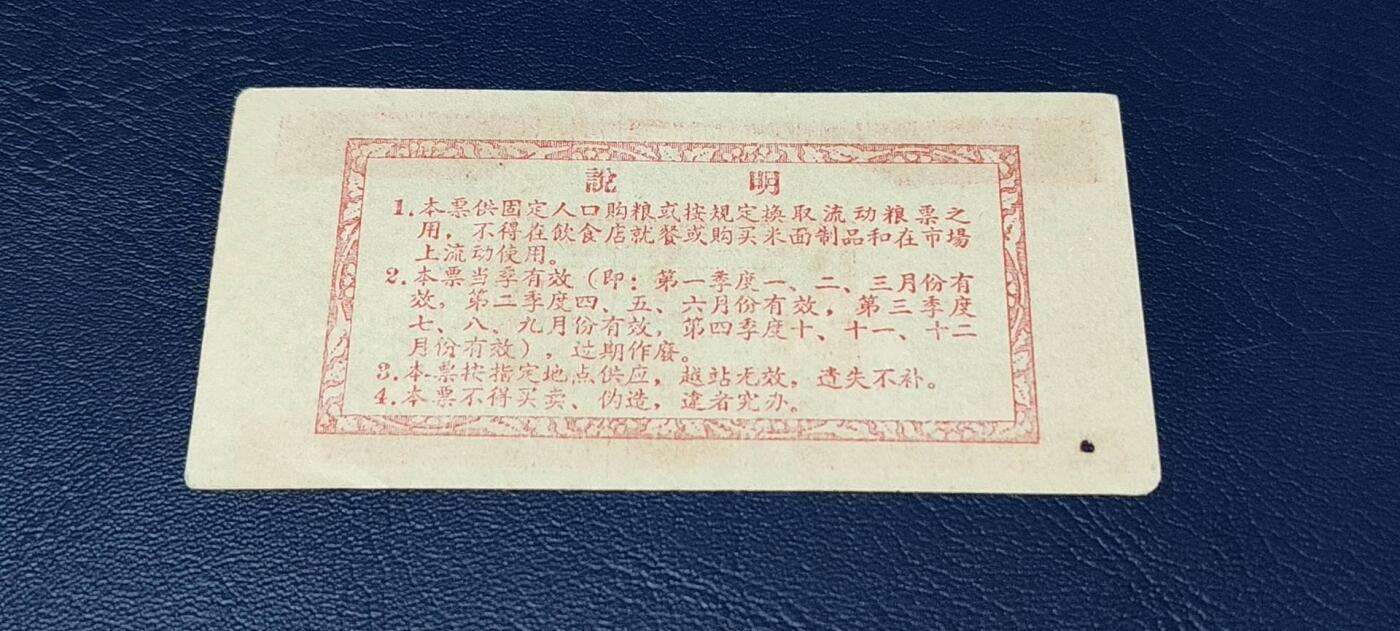 說明
1.本票供固定人口购粮或按規定換取流动粮票之
用，不得在飲食店就餐或购买米面制品和在市場
上流动使用。
2.本票当季有效（即：第一季度一、二、三月份有
效，第二季度四、五、六月份有效，第三季度
七、八、九月份有效，第四季度十、十一、十二
月份有效），过期作廢。
3.本票按指定地点供应，越站无效，遺失不补。
4.本票不得买卖、伪造，違者究办。